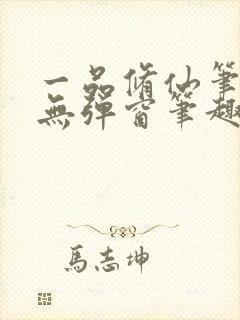 一品脩仙筆
無彈窗筆趣
馬志坤